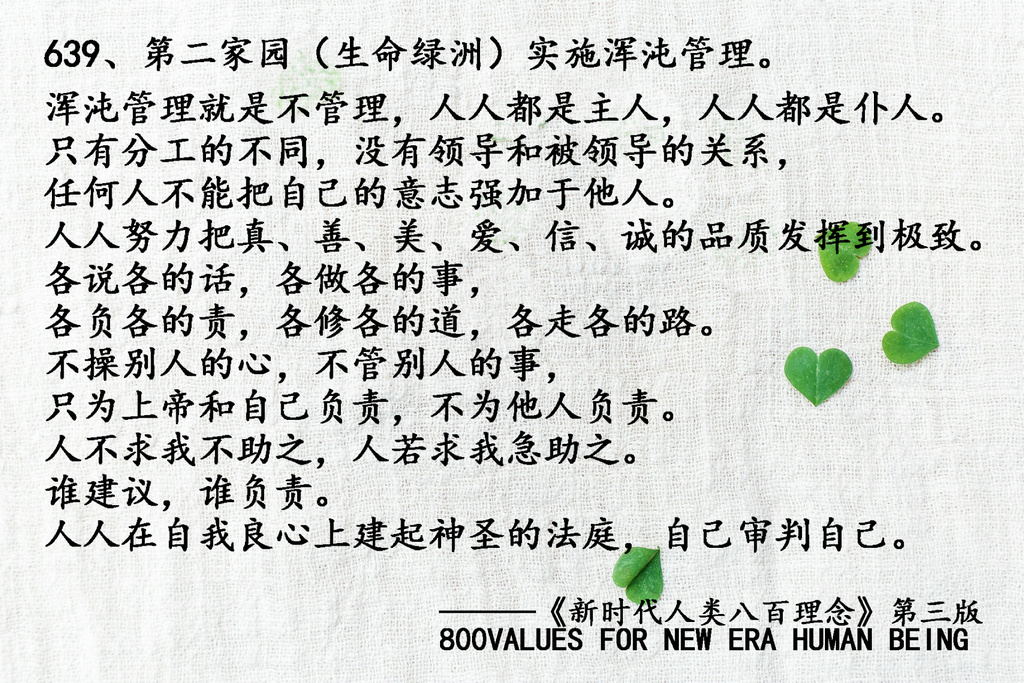 639、第二家园（生命绿洲）实施浑沌管理。
浑沌管理就是不管理，人人都是主人，人人都是仆人。
只有分工的不同，没有领导和被领导的关系，
任何人不能把自己的意志强加于他人。
人人努力把真、善、美、爱、信、诚的品质发挥到极致。
各说各的话，各做各的事，
各负各的责，各修各的道，各走各的路。
不操别人的心，不管别人的事，
只为上帝和自己负责，不为他人负责。
人不求我不助之，人若求我急助之。
谁建议，谁负责。
人人在自我良心上建起神圣的法庭，自己审判自己。
———《新时代人类八百理念》第三版
800VALUES FOR NEW ERA HUMAN BEING